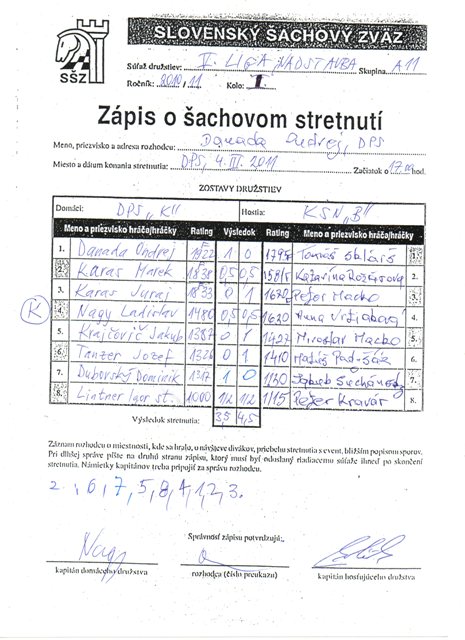 SLOVENSKÝ ŠACHOVÝ ZVÄZ
SŠZ
Súťaž družstiev: V. LIGA NADSTAVBA Skupina A11
Ročník: 2010/11 Kolo: 1
Zápis o šachovom stretnutí
Meno, priezvisko a adresa rozhodcu: Danada Ondrej, DPS
Miesto a dátum konania stretnutia: DPS, 4. III. 2011 Začiatok o 17.00 hod.
ZOSTAVY DRUŽSTIEV
Domáci: DPS „K" Hostia: KSN „B"
Meno a priezvisko hráča/hráčky Rating Výsledok Rating Meno a priezvisko hráča/hráčky
1. Danada Ondrej 1 0 1795 Tomáš 1.
2. Karas Marek 0,5 0,5 2.
3. Karas Juraj 0 1 1620 Peter Macko 3.
K 4. Nagy Ladislav 1480 0,5 0,5 1620 Anna 4.
5. Krajčovič Jakub 1387 0 1 1427 Miroslav Macko 5.
6. Tanzer Jozef 1326 0 1 1410 Matúš 6.
7. Dubovský Dominik 1317 1 0 1130 Jakub 7.
8. Lintner Igor st. 1000 1/2 1/2 1115 Peter Kravár 8.
Výsledok stretnutia: 3,5 4,5
Záznam rozhodcu o miestnosti, kde sa hralo, o návšteve divákov, priebehu stretnutia s event. bližším popisom sporov.
Pri dlhšej správe píšte na druhú stranu zápisu, ktorý musí byť odoslaný riadiacemu súťaže ihneď po skončení
stretnutia. Námietky kapitánov treba pripojiť za správu rozhodcu.
6, 7, 5, 8, 4, 1, 2, 3.
Správnosť zápisu potvrdzujú:
Nagy
kapitán domáceho družstva rozhodca (číslo preukazu) kapitán hosťujúceho družstva